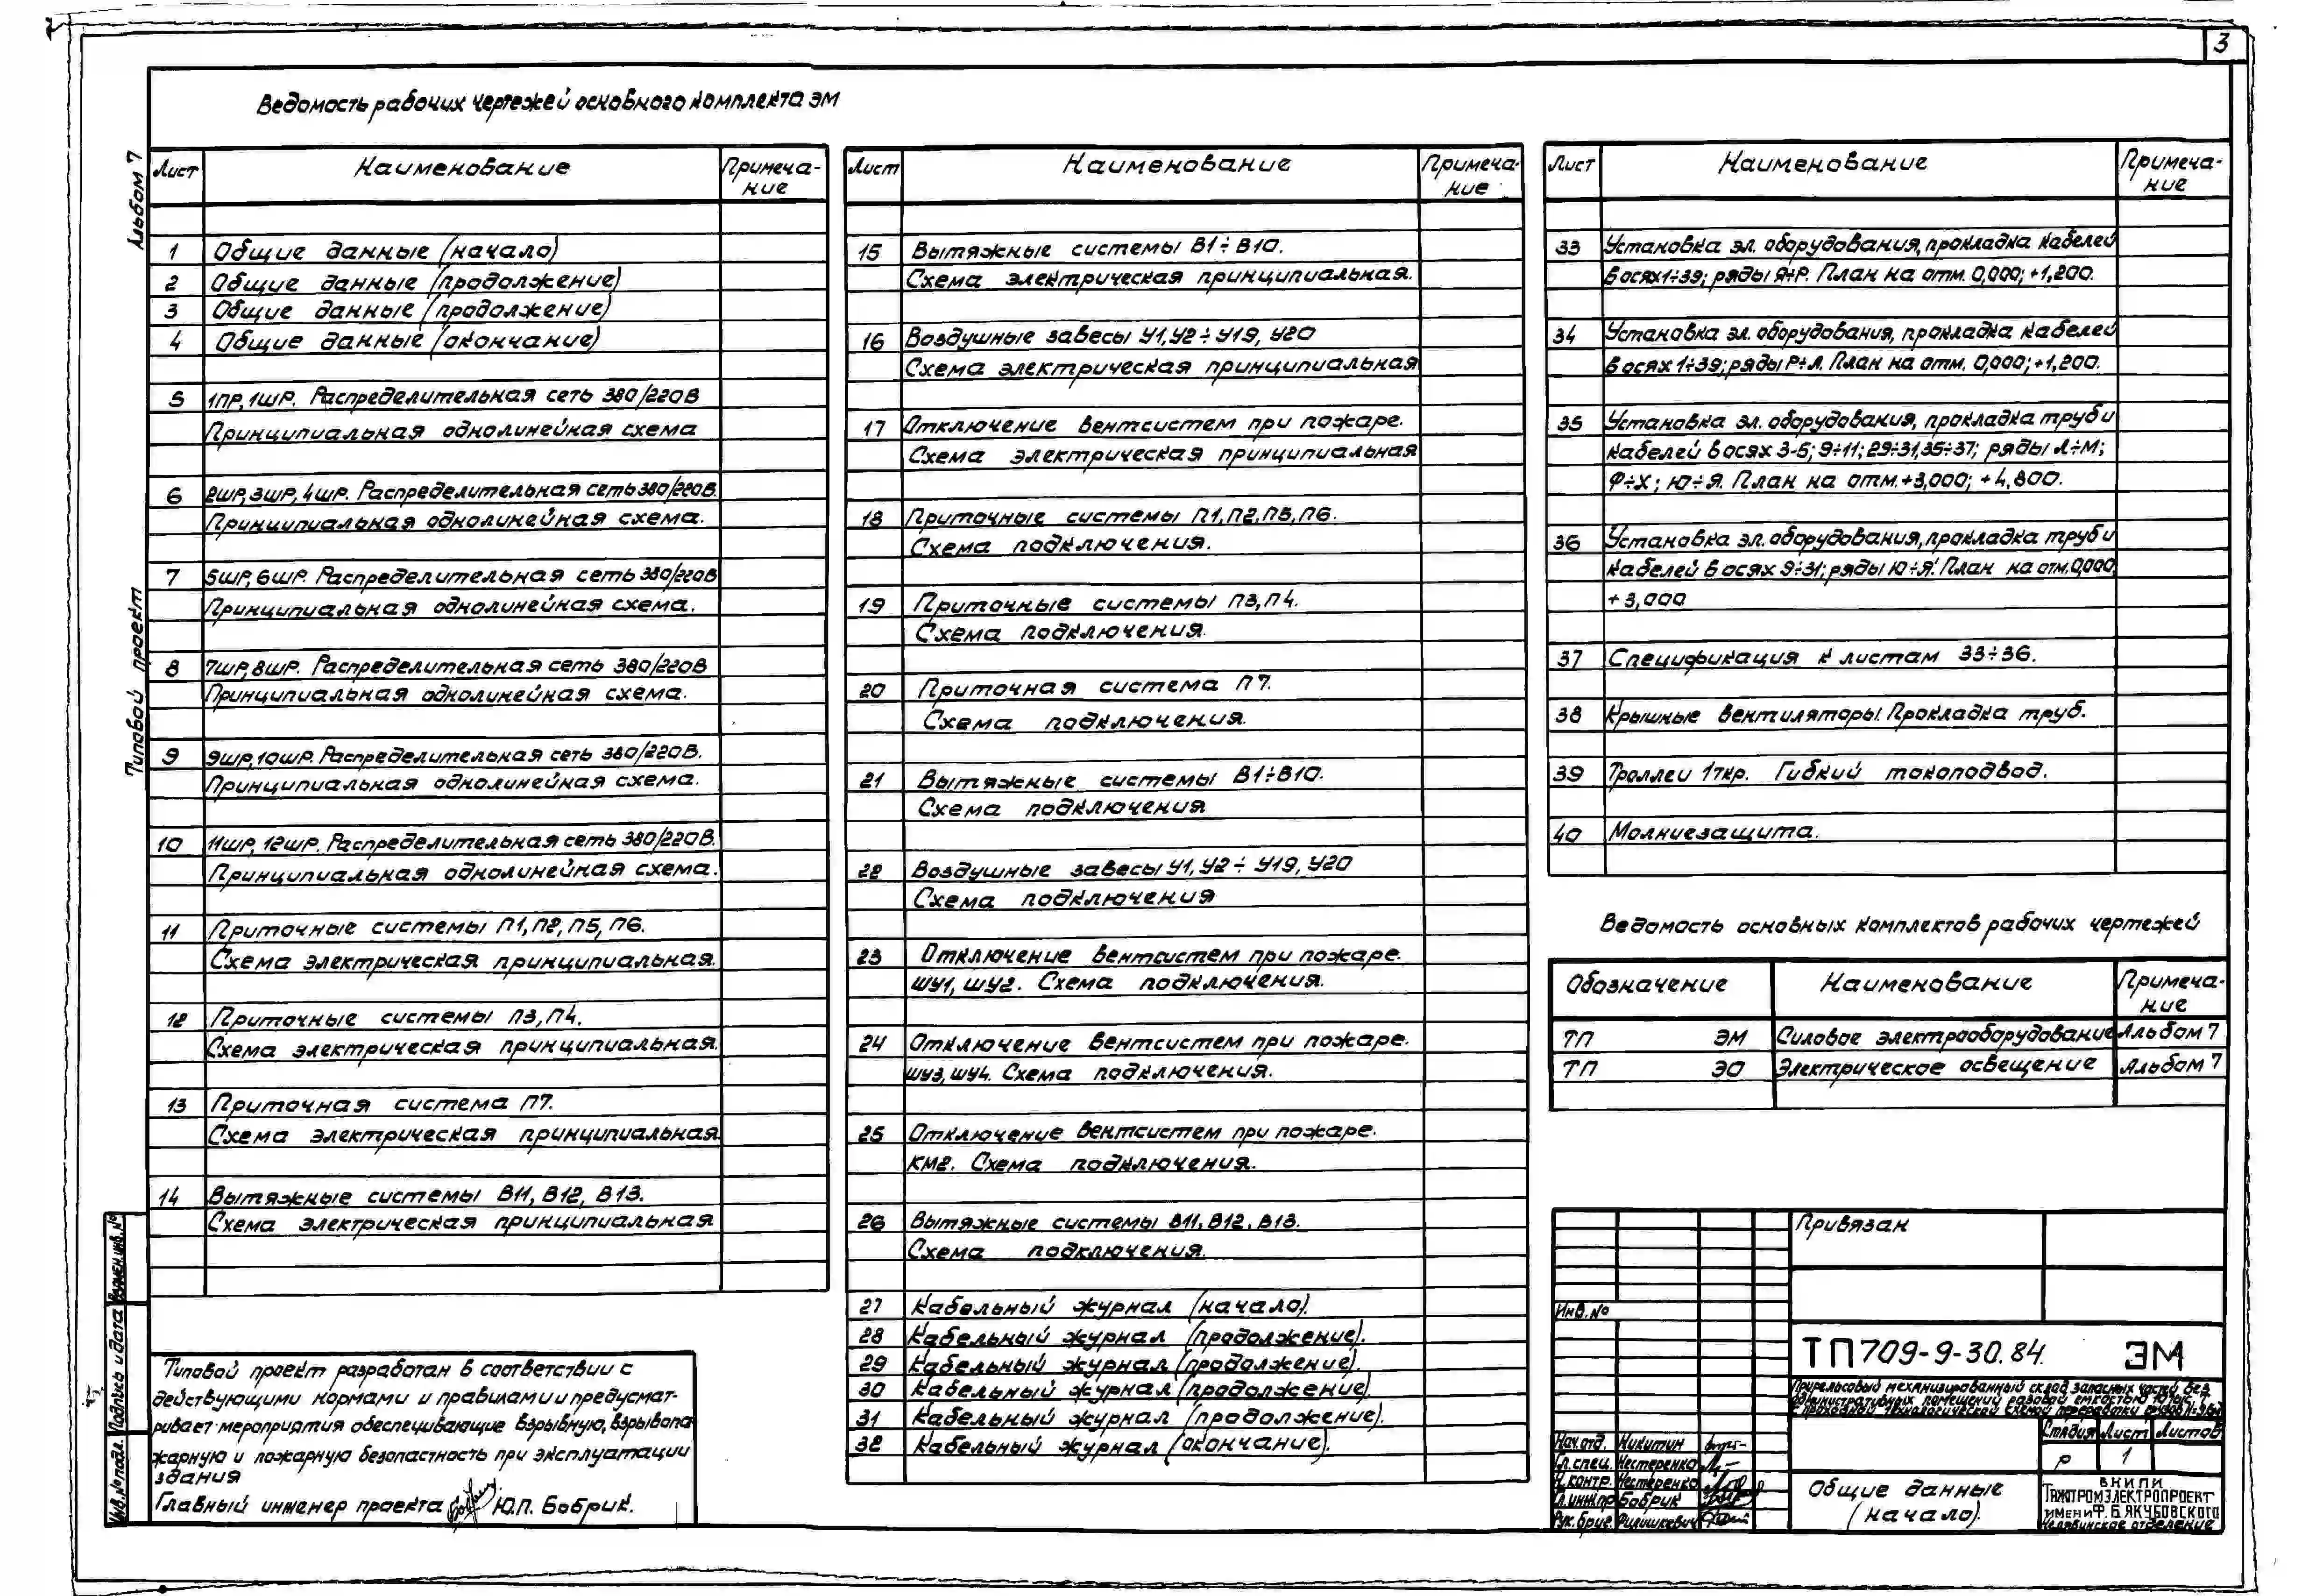 3
Альбом 7
Типовой проект
Ведомость рабочих чертежей основного комплекта ЭМ
Лист Наименование Примеча-
ние
1 Общие данные (начало)
2 Общие данные (продолжение)
3 Общие данные (продолжение)
4 Общие данные (окончание)
5 1ПР, 1ШР. Распределительная сеть 380/220В
Принципиальная однолинейная схема
6 2ШР, 3ШР, 4ШР. Распределительная сеть 380/220В.
Принципиальная однолинейная схема.
7 5ШР, 6ШР. Распределительная сеть 380/220В
Принципиальная однолинейная схема.
8 7ШР, 8ШР. Распределительная сеть 380/220В
Принципиальная однолинейная схема.
9 9ШР, 10ШР. Распределительная сеть 380/220В.
Принципиальная однолинейная схема.
10 11ШР, 12ШР. Распределительная сеть 380/220В.
Принципиальная однолинейная схема.
11 Приточные системы П1, П2, П5, П6.
Схема электрическая принципиальная.
12 Приточные системы П3, П4.
Схема электрическая принципиальная.
13 Приточная система П7.
Схема электрическая принципиальная
14 Вытяжные системы В11, В12, В13.
Схема электрическая принципиальная
Лист Наименование Примеча-
ние
15 Вытяжные системы В1÷В10.
Схема электрическая принципиальная.
16 Воздушные завесы У1, У2 ÷ У19, У20
Схема электрическая принципиальная
17 Отключение вентсистем при пожаре.
Схема электрическая принципиальная
18 Приточные системы П1, П2, П5, П6.
Схема подключения.
19 Приточные системы П3, П4.
Схема подключения.
20 Приточная система П7.
Схема подключения.
21 Вытяжные системы В1÷В10.
Схема подключения
22 Воздушные завесы У1, У2 ÷ У19, У20
Схема подключения
23 Отключение вентсистем при пожаре.
ШУ1, ШУ2. Схема подключения.
24 Отключение вентсистем при пожаре.
ШУ3, ШУ4. Схема подключения.
25 Отключение вентсистем при пожаре.
КМ2. Схема подключения.
26 Вытяжные системы В11, В12, В13.
Схема подключения.
27 Кабельный журнал (начало).
28 Кабельный журнал (продолжение).
29 Кабельный журнал (продолжение).
30 Кабельный журнал (продолжение)
31 Кабельный журнал (продолжение).
32 Кабельный журнал (окончание).
Лист Наименование Примеча-
ние
33 Установка эл. оборудования, прокладка кабелей
в осях 1÷39; ряды А÷Р. План на отм. 0,000; +1,200.
34 Установка эл. оборудования, прокладка кабелей
в осях 1÷39; ряды Р÷Л. План на отм. 0,000; +1,200.
35 Установка эл. оборудования, прокладка труб и
кабелей в осях 3-5; 9÷11; 29÷31, 35÷37; ряды Л÷М;
Ф÷Х; Ю÷Я. План на отм. +3,000; +4,800.
36 Установка эл. оборудования, прокладка труб и
кабелей в осях 9÷31; ряды Ю÷Я. План на отм. 0,000,
+3,000
37 Спецификация к листам 33÷36.
38 Крышные вентиляторы. Прокладка труб.
39 Троллеи 1ткр. Гибкий токоподвод.
40 Молниезащита.
Ведомость основных комплектов рабочих чертежей
Обозначение Наименование Примеча-
ние
ТП ЭМ Силовое электрооборудование Альбом 7
ТП ЭО Электрическое освещение Альбом 7
Взамен.инв.№
Подпись и дата
Инв.№подл.
Типовой проект разработан в соответствии с
действующими нормами и правилами и предусмат-
ривает мероприятия обеспечивающие взрывную, взрывопо-
жарную и пожарную безопастность при эксплуатации
здания
Главный инженер проекта Ю.П. Бобрик.
Привязан
Инв.№
ТП709-9-30.84. ЭМ
Прирельсовый механизированный склад запасных частей без
административных помещений разовой емкостью
Стадия Лист Листов
Р 1
Нач.отд. Никитин
Гл.спец. Нестеренко
Н.контр. Нестеренко
Гл.инж.пр Бобрик
Рук.бриг. Филишкевич
Общие данные
(начало).
ВНИПИ
ТЯЖПРОМЭЛЕКТРОПРОЕКТ
имени Ф.Б.ЯКУБОВСКОГО
Челябинское отделение